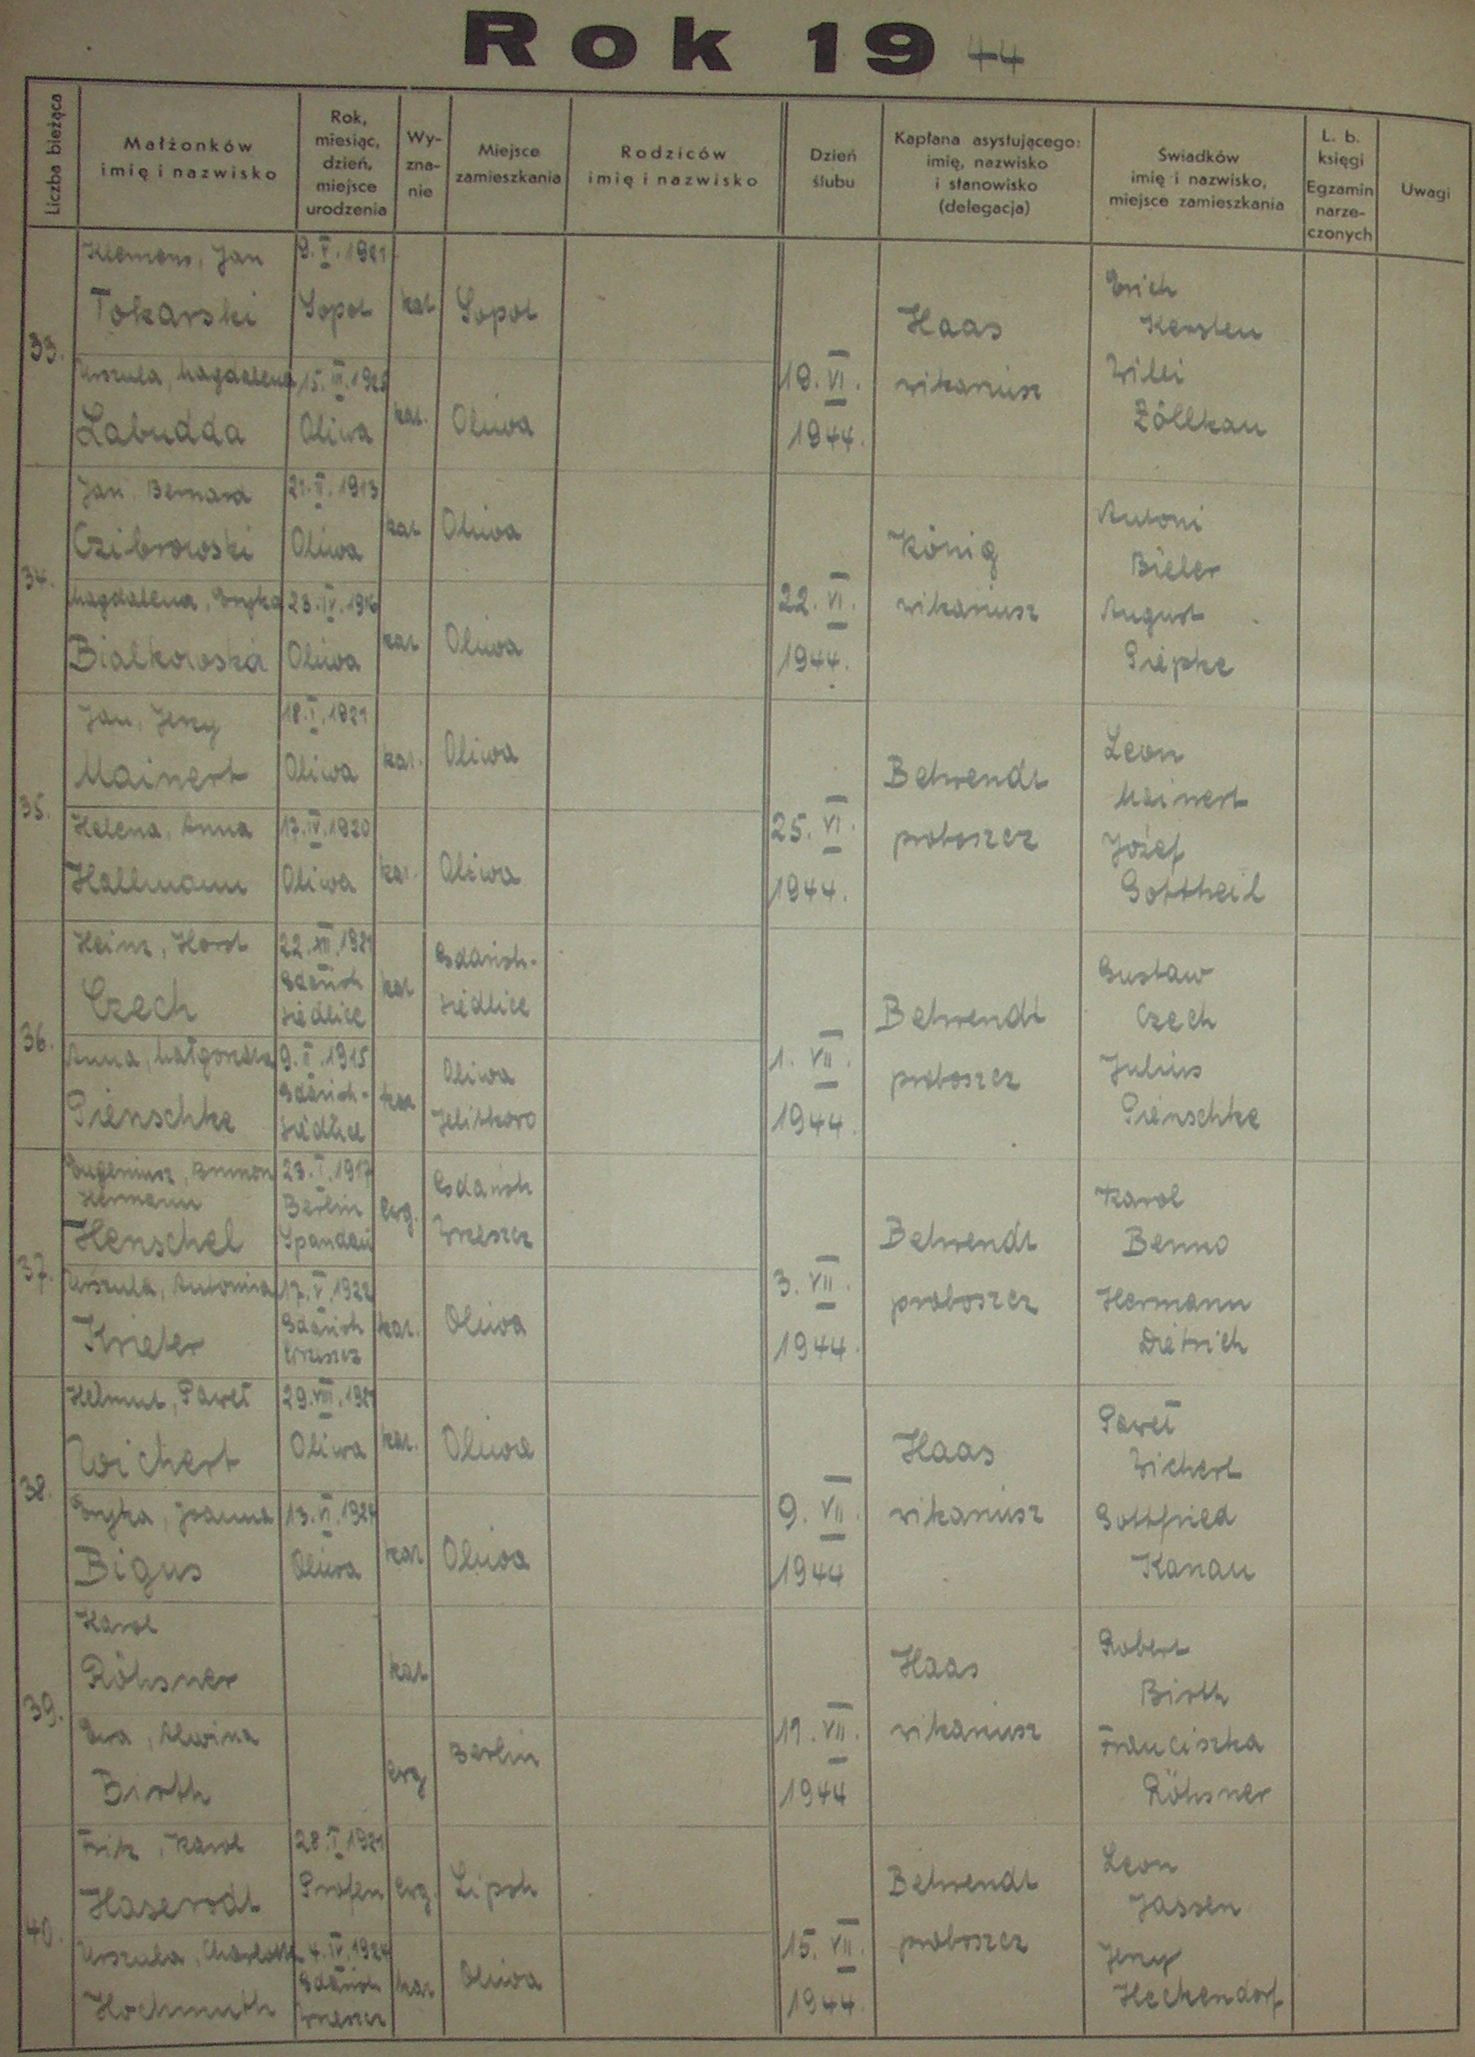 Rok 1944
Liczba bieżąca
Małżonków
imię i nazwisko
Rok,
miesiąc,
dzień,
miejsce
urodzenia
Wy-
zna-
nie
Miejsce
zamieszkania
Rodziców
imię i nazwisko
Dzień
ślubu
Kapłana asystującego:
imię, nazwisko
i stanowisko
(delegacja)
Świadków
imię i nazwisko,
miejsce zamieszkania
L. b.
księgi
Egzamin
narze-
czonych
Uwagi
33.
Klemens, Jan
Tokarski
9. V. 1921
Sopot
kat
Sopot
Urszula, Magdalena
Labudda
15. III.
Oliwa
kat.
Oliwa
19. VI.
1944.
Haas
wikariusz
Erich
Kersten
Willi
Zöllkau
34.
Jan, Bernard
Czibrowski
21. II. 1913
Oliwa
kat
Oliwa
Magdalena, Eryka
Bialkowska
23. IV.
Oliwa
kat
Oliwa
22. VI.
1944.
König
wikariusz
Antoni
Bieler
August
Piepke
35.
Jan, Jerzy
Mainert
18. I. 1921
Oliwa
kat.
Oliwa
Helena, Anna
Hallmann
17. IV. 1920
Oliwa
kat.
Oliwa
25. VI.
1944.
Behrendt
proboszcz
Leon
Mainert
Józef
Gottheil
36.
Heinz, Horst
Czech
22. XII. 1921
Gdańsk
Siedlice
kat
Gdańsk-
Siedlice
Anna, Małgorzata
Pienschke
9. II. 1915
Gdańsk-
Siedlice
kat
Oliwa
Jelitkowo
1. VII.
1944.
Behrendt
proboszcz
Gustaw
Czech
Julius
Pienschke
37.
Eugeniusz,
Hermann
Henschel
23. I. 1917
Berlin
Spandau
ewg.
Gdańsk
Wrzeszcz
Urszula, Antonina
Krieter
17. V. 1922
Gdańsk
Wrzeszcz
kat.
Oliwa
3. VII.
1944.
Behrendt
proboszcz
Karol
Benno
Hermann
Dietrich
38.
Helmut, Paweł
Wichert
29. VIII. 1921
Oliwa
kat.
Oliwa
Eryka, Joanna
Bigus
13. VI. 1924
Oliwa
kat
Oliwa
9. VII.
1944
Haas
wikariusz
Paweł
Wichert
Gottfried
Kanau
39.
Karol
Röhsner
kat
Ewa, Alwina
Birth
ewg
Berlin
11. VII.
1944
Haas
wikariusz
Robert
Birth
Franciszka
Röhsner
40.
Fritz, Karol
Haserodt
28. I. 1921
Profen
ewg.
Lipsk
Urszula, Charlotte
Hochmuth
4. IV. 1924
Gdańsk
Wrzeszcz
kat
Oliwa
15. VII.
1944.
Behrendt
proboszcz
Leon
Jassen
Jerzy
Heckendorf